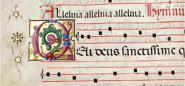 Alleluia alleluia alleluia. Hymnus
Celi deus sanctissime q